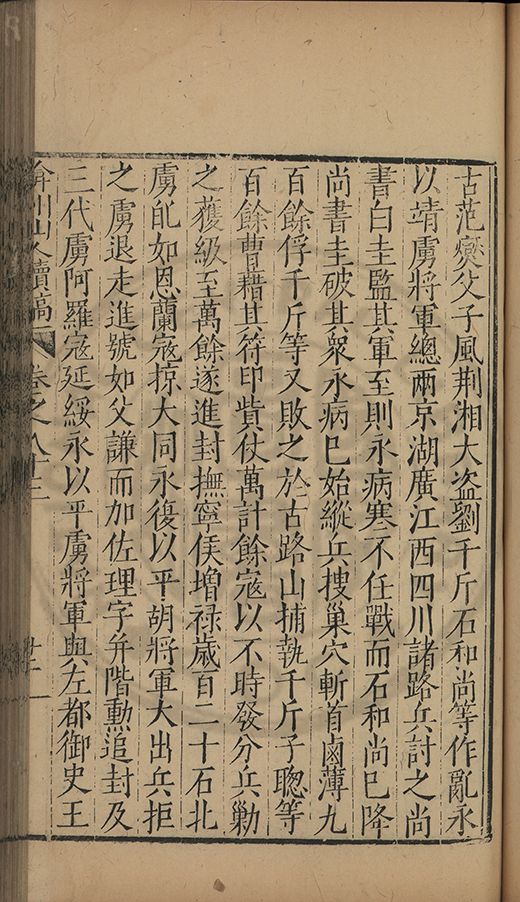 古范爕父子風荆湘大盗劉千斤石和尚等作亂永
以靖虜將軍總兩京湖廣江西四川諸路兵討之尚
書白圭監其軍至則永病寒不任戰而石和尚巳降
尚書圭破其衆永病巳始縱兵搜巢穴斬首鹵薄九
百餘俘千斤等又敗之於古路山捕執千斤子聰等
百餘曹藉其符印貲仗萬計餘寇以不時發分兵勦
之獲級至萬餘遂進封撫寧侯增禄歲百二十石北
虜癿如思蘭寇掠大同永復以平胡將軍大出兵拒
之虜退走進號如父謙而加佐理字并階勲追封及
三代虜阿羅寇延綏永以平虜將軍與左都御史王
弇州山人續稿 卷之八十三